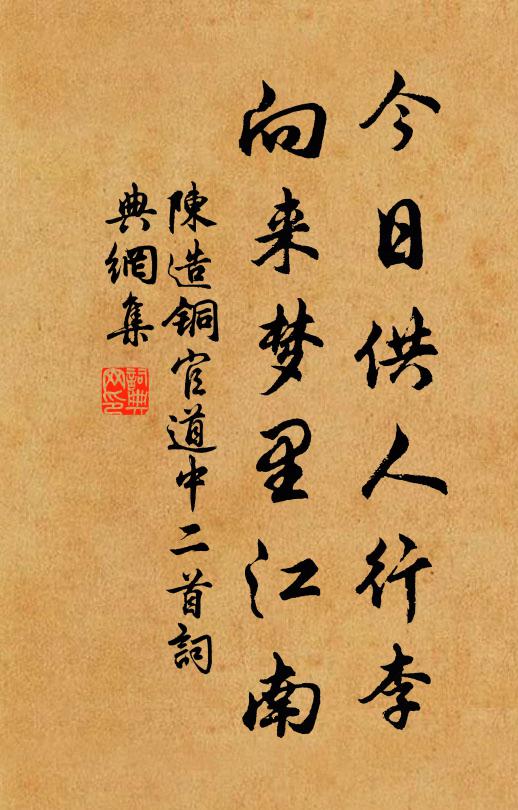 今日供人行李
向来梦里江南
陳造銅官道中二首詞
典網集
詞典
网印